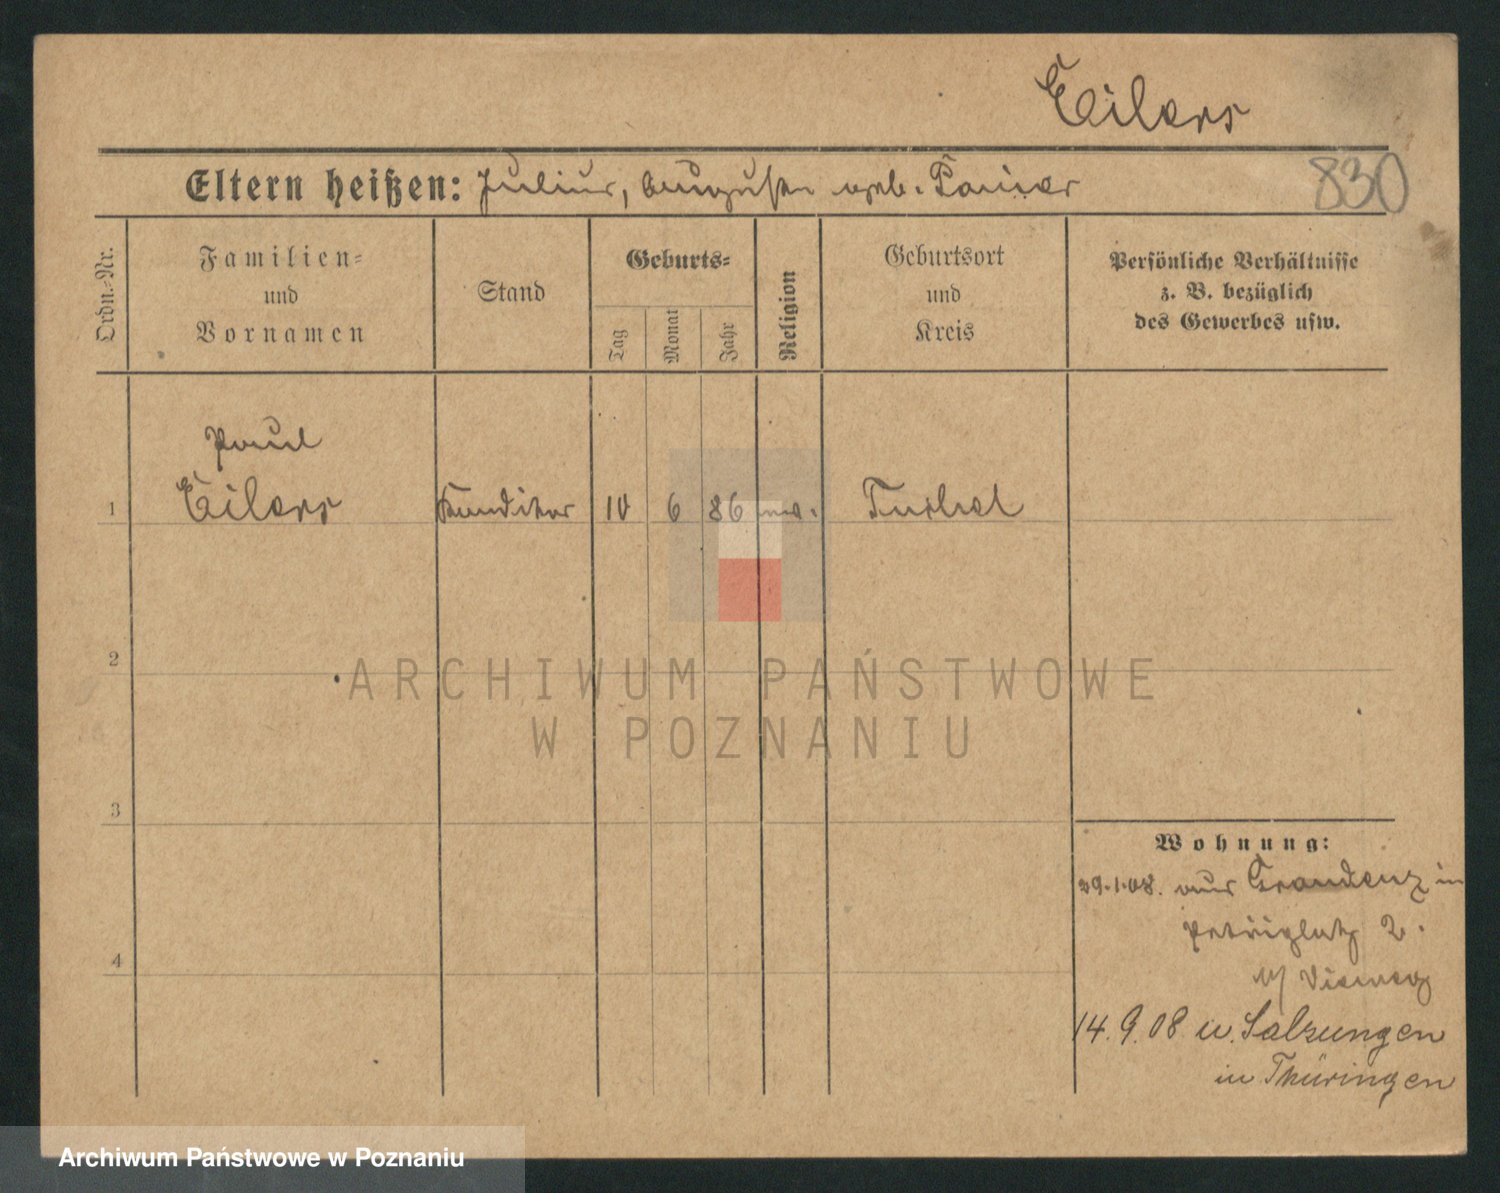 Eilers
Eltern heißen: Julius, Auguste geb.
830
Ordn.-Nr.
Familien-
und
Vornamen
Stand
Geburts-
Tag
Monat
Jahr
Religion
Geburtsort
und
Kreis
Persönliche Verhältnisse
z. B. bezüglich
des Gewerbes usw.
Paul
1 Eilers Konditor 10 6 86
2
3
4
Wohnung:
29.1.08. aus Graudenz in
Petriplatz 2.
14.9.08 n. Salzungen
in Thüringen
ARCHIWUM PAŃSTWOWE
W POZNANIU
Archiwum Państwowe w Poznaniu